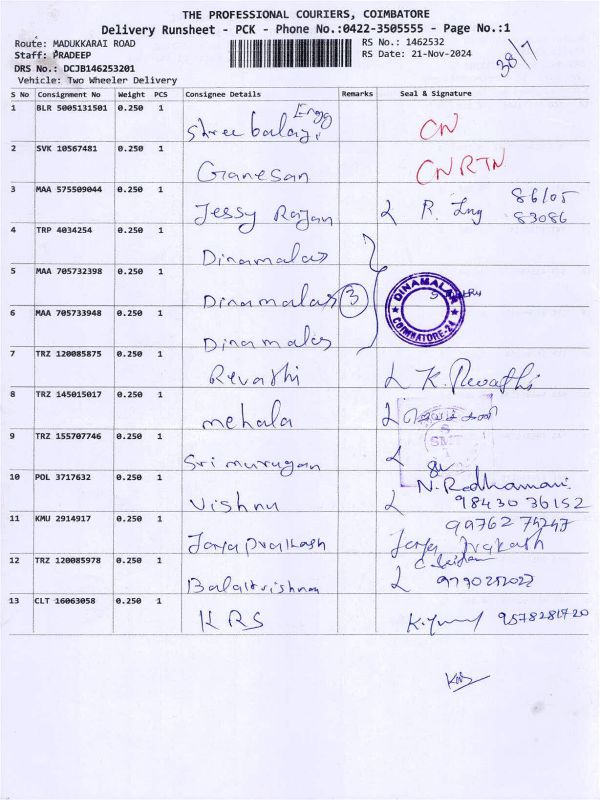 THE PROFESSIONAL COURIERS, COIMBATORE
Delivery Runsheet - PCK - Phone No.:0422-3505555 - Page No.:1
Route: MADUKKARAI ROAD RS No.: 1462532
Staff: PRADEEP RS Date: 21-Nov-2024
DRS No.: DCJB146253201 38/7
Vehicle: Two Wheeler Delivery
S No Consignment No Weight PCS Consignee Details Remarks Seal & Signature
1 BLR 5005131501 0.250 1 Shree balaji Engg CN
2 SVK 10567481 0.250 1 Ganesan CN RTN
3 MAA 575509044 0.250 1 Jessy Rajan 83086
4 TRP 4034254 0.250 1 Dinamalar
5 MAA 705732398 0.250 1 Dinamalar 3 DINAMALAR COIMBATORE-24
6 MAA 705733948 0.250 1 Dinamalar
7 TRZ 120085875 0.250 1 Revathi K. Revathi
8 TRZ 145015017 0.250 1 mehala
9 TRZ 155707746 0.250 1 Sri murugan
10 POL 3717632 0.250 1 Vishnu N. Radhamani 98430 36152
11 KMU 2914917 0.250 1 Jaya Prakash 99762 74247 Jaya Prakash
12 TRZ 120085978 0.250 1 Balakrishnan
13 CLT 16063058 0.250 1 KRS 9578281420